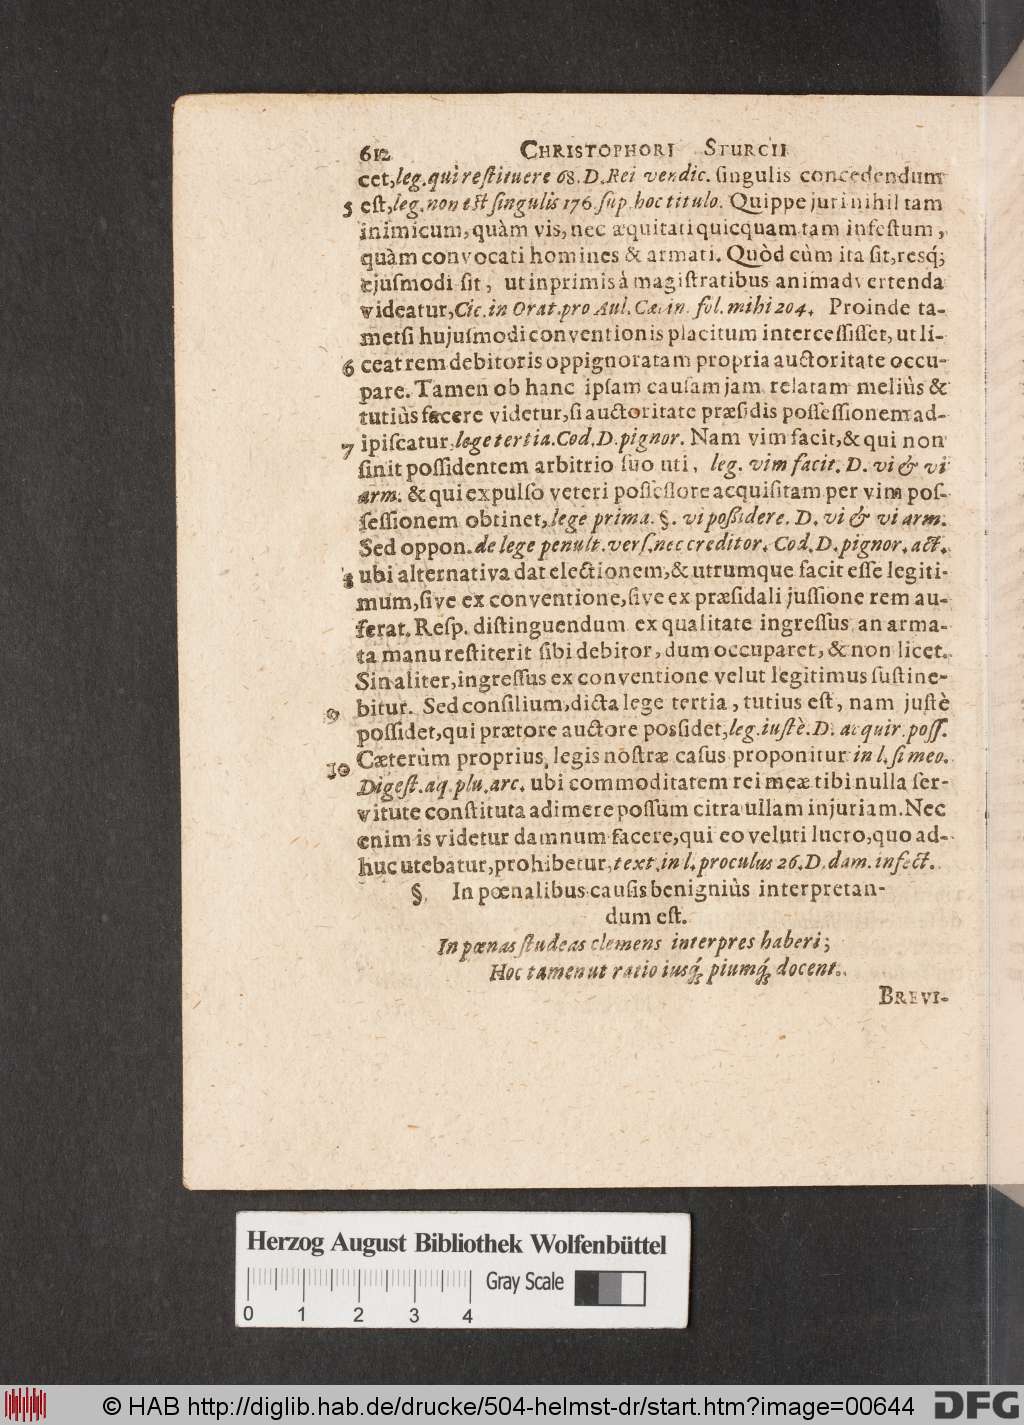 612 CHRISTOPHORI STURCII
cet, leg. qui reſtituere 68. D. Rei vendic. ſingulis concedendum
5 eſt, leg. non eſt ſingulis 176. ſup. hoc titulo. Quippe juri nihil tam
inimicum, quàm vis, nec æquitati quicquam tam infeſtum,
quàm convocati homines & armati. Quòd cùm ita ſit, resq́;
ejuſmodi ſit, ut inprimis à magiſtratibus animadvertenda
videatur, Cic. in Orat. pro Aul. Cæcin. fol. mihi 204. Proinde ta-
metſi hujuſmodi conventionis placitum interceſſiſſet, ut li-
6 ceat rem debitoris oppignoratam propria auctoritate occu-
pare. Tamen ob hanc ipſam cauſam jam relatam meliùs &
tutiùs facere videtur, ſi auctoritate præſidis poſſeſſionem ad-
7 ipiſcatur, lege tertia. Cod. D. pignor. Nam vim facit, & qui non
ſinit poſſidentem arbitrio ſuo uti, leg. vim facit. D. vi & vi
arm. & qui expulſo veteri poſſeſſore acquiſitam per vim poſ-
ſeſſionem obtinet, lege prima. §. vi poßidere. D. vi & vi arm.
Sed oppon. de lege penult. verſ. nec creditor. Cod. D. pignor. act.
8 ubi alternativa dat electionem, & utrumque facit eſſe legiti-
mum, ſive ex conventione, ſive ex præſidali juſſione rem au-
ferat. Reſp. diſtinguendum ex qualitate ingreſſus an arma-
ta manu reſtiterit ſibi debitor, dum occuparet, & non licet.
Sin aliter, ingreſſus ex conventione velut legitimus ſuſtine-
9 bitur. Sed conſilium, dicta lege tertia, tutius eſt, nam juſtè
poſſidet, qui prætore auctore poſsidet, leg. iuſtè. D. acquir. poſſ.
10 Cæterùm proprius legis noſtræ caſus proponitur in l. ſi meo.
Digeſt. aq. plu. arc. ubi commoditatem rei meæ tibi nulla ſer-
vitute conſtituta adimere poſſum citra ullam injuriam. Nec
enim is videtur damnum facere, qui eo veluti lucro, quo ad-
huc utebatur, prohibetur, text. in l. proculus 26. D. dam. infect.
§. In pœnalibus cauſis benigniùs interpretan-
dum eſt.
In pœnas ſtudeas clemens interpres haberi;
Hoc tamen ut ratio iusq́; piumq́; docent.
BREVI-
Herzog August Bibliothek Wolfenbüttel
Gray Scale
0 1 2 3 4
© HAB http://diglib.hab.de/drucke/504-helmst-dr/start.htm?image=00644 DFG